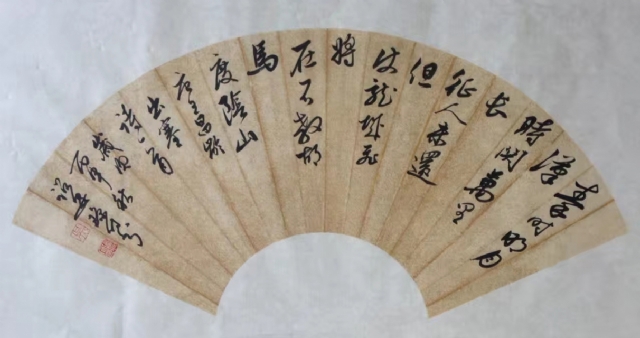 秦时明月
漢
時関萬里
長
征人未還
但
使龍城飛
將
在不教胡
馬
度陰山
唐王昌齡
出塞
詩一首
歲
丙申